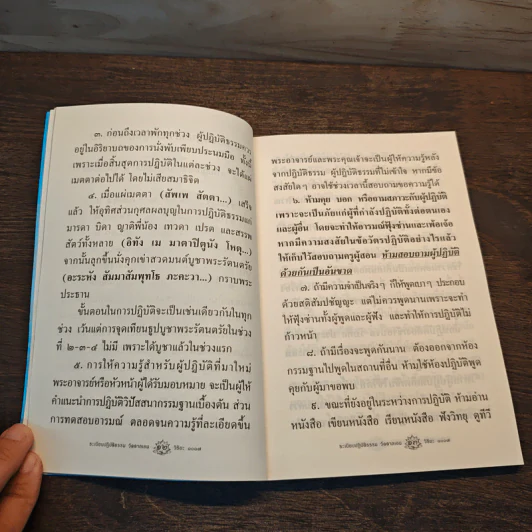 ๓. ก่อนถึงเวลาพักทุกช่วง ผู้ปฏิบัติธรรมควร
อยู่ในอิริยาบถของการนั่งพับเพียบประนมมือ ทั้งนี้
เพราะเมื่อสิ้นสุดการปฏิบัติในแต่ละช่วง จะได้แผ่
เมตตาต่อไปได้ โดยไม่เสียสมาธิจิต
๔. เมื่อแผ่เมตตา (สัพเพ สัตตา...) เสร็จ
แล้ว ให้อุทิศส่วนกุศลผลบุญในการปฏิบัติธรรมแก่
มารดา บิดา ญาติพี่น้อง เทวดา เปรต และสรรพ
สัตว์ทั้งหลาย (อิทัง เม มาตาปิตูนัง โหตุ...)
จากนั้นลุกขึ้นนั่งคุกเข่าสวดมนต์บูชาพระรัตนตรัย
(อะระหัง สัมมาสัมพุทโธ ภะคะวา...) กราบพระ
ประธาน
ขั้นตอนในการปฏิบัติจะเป็นเช่นเดียวกันในทุก
ช่วง เว้นแต่การจุดเทียนธูปบูชาพระรัตนตรัยในช่วง
ที่ ๒-๓-๔ ไม่มี เพราะได้บูชาแล้วในช่วงแรก
๕. การให้ความรู้สำหรับผู้ปฏิบัติที่มาใหม่
พระอาจารย์หรือหัวหน้าผู้ได้รับมอบหมาย จะเป็นผู้ให้
คำแนะนำการปฏิบัติวิปัสสนากรรมฐานเบื้องต้น ส่วน
การทดสอบอารมณ์ ตลอดจนความรู้ที่ละเอียดขึ้น
ระเบียบปฏิบัติธรรม วัดตาลเอน ๑๒
พระอาจารย์และพระคุณเจ้าจะเป็นผู้ให้ความรู้หลัง
จากปฏิบัติธรรม ผู้ปฏิบัติธรรมที่ไม่เข้าใจ หากมีข้อ
สงสัยใดๆ อาจใช้ช่วงเวลานี้สอบถามขอความรู้ได้
๖. ห้ามคุย บอก หรือถามสภาวะกับผู้ปฏิบัติ
เพราะจะเป็นภัยแก่ผู้ที่กำลังปฏิบัติทั้งต่อตนเอง
และผู้อื่น โดยจะทำให้อารมณ์ฟุ้งซ่านและเพ้อเจ้อ
หากมีความสงสัยในข้อวัตรปฏิบัติอย่างไรแล้ว
ให้เก็บไว้สอบถามครูผู้สอน ห้ามสอบถามผู้ปฏิบัติ
ด้วยกันเป็นอันขาด
๗. ถ้ามีความจำเป็นจริงๆ ก็ให้พูดเบาๆ ประกอบ
ด้วยสติสัมปชัญญะ พูดได้ แต่ไม่ควรพูดนานเพราะจะทำ
ให้ฟุ้งซ่านทั้งผู้พูดและผู้ฟัง และทำให้การปฏิบัติไม่
ก้าวหน้า
๘. ถ้ามีเรื่องจะพูดกันนาน ต้องออกจากห้อง
กรรมฐานไปพูดในสถานที่อื่น ห้ามใช้ห้องปฏิบัติพูด
คุยกับผู้มาขอพบ
๙. ขณะที่ยังอยู่ในระหว่างการปฏิบัติ ห้ามอ่าน
หนังสือ เขียนหนังสือ เรียนหนังสือ ฟังวิทยุ ดูทีวี
ระเบียบปฏิบัติธรรม วัดตาลเอน ๑๓